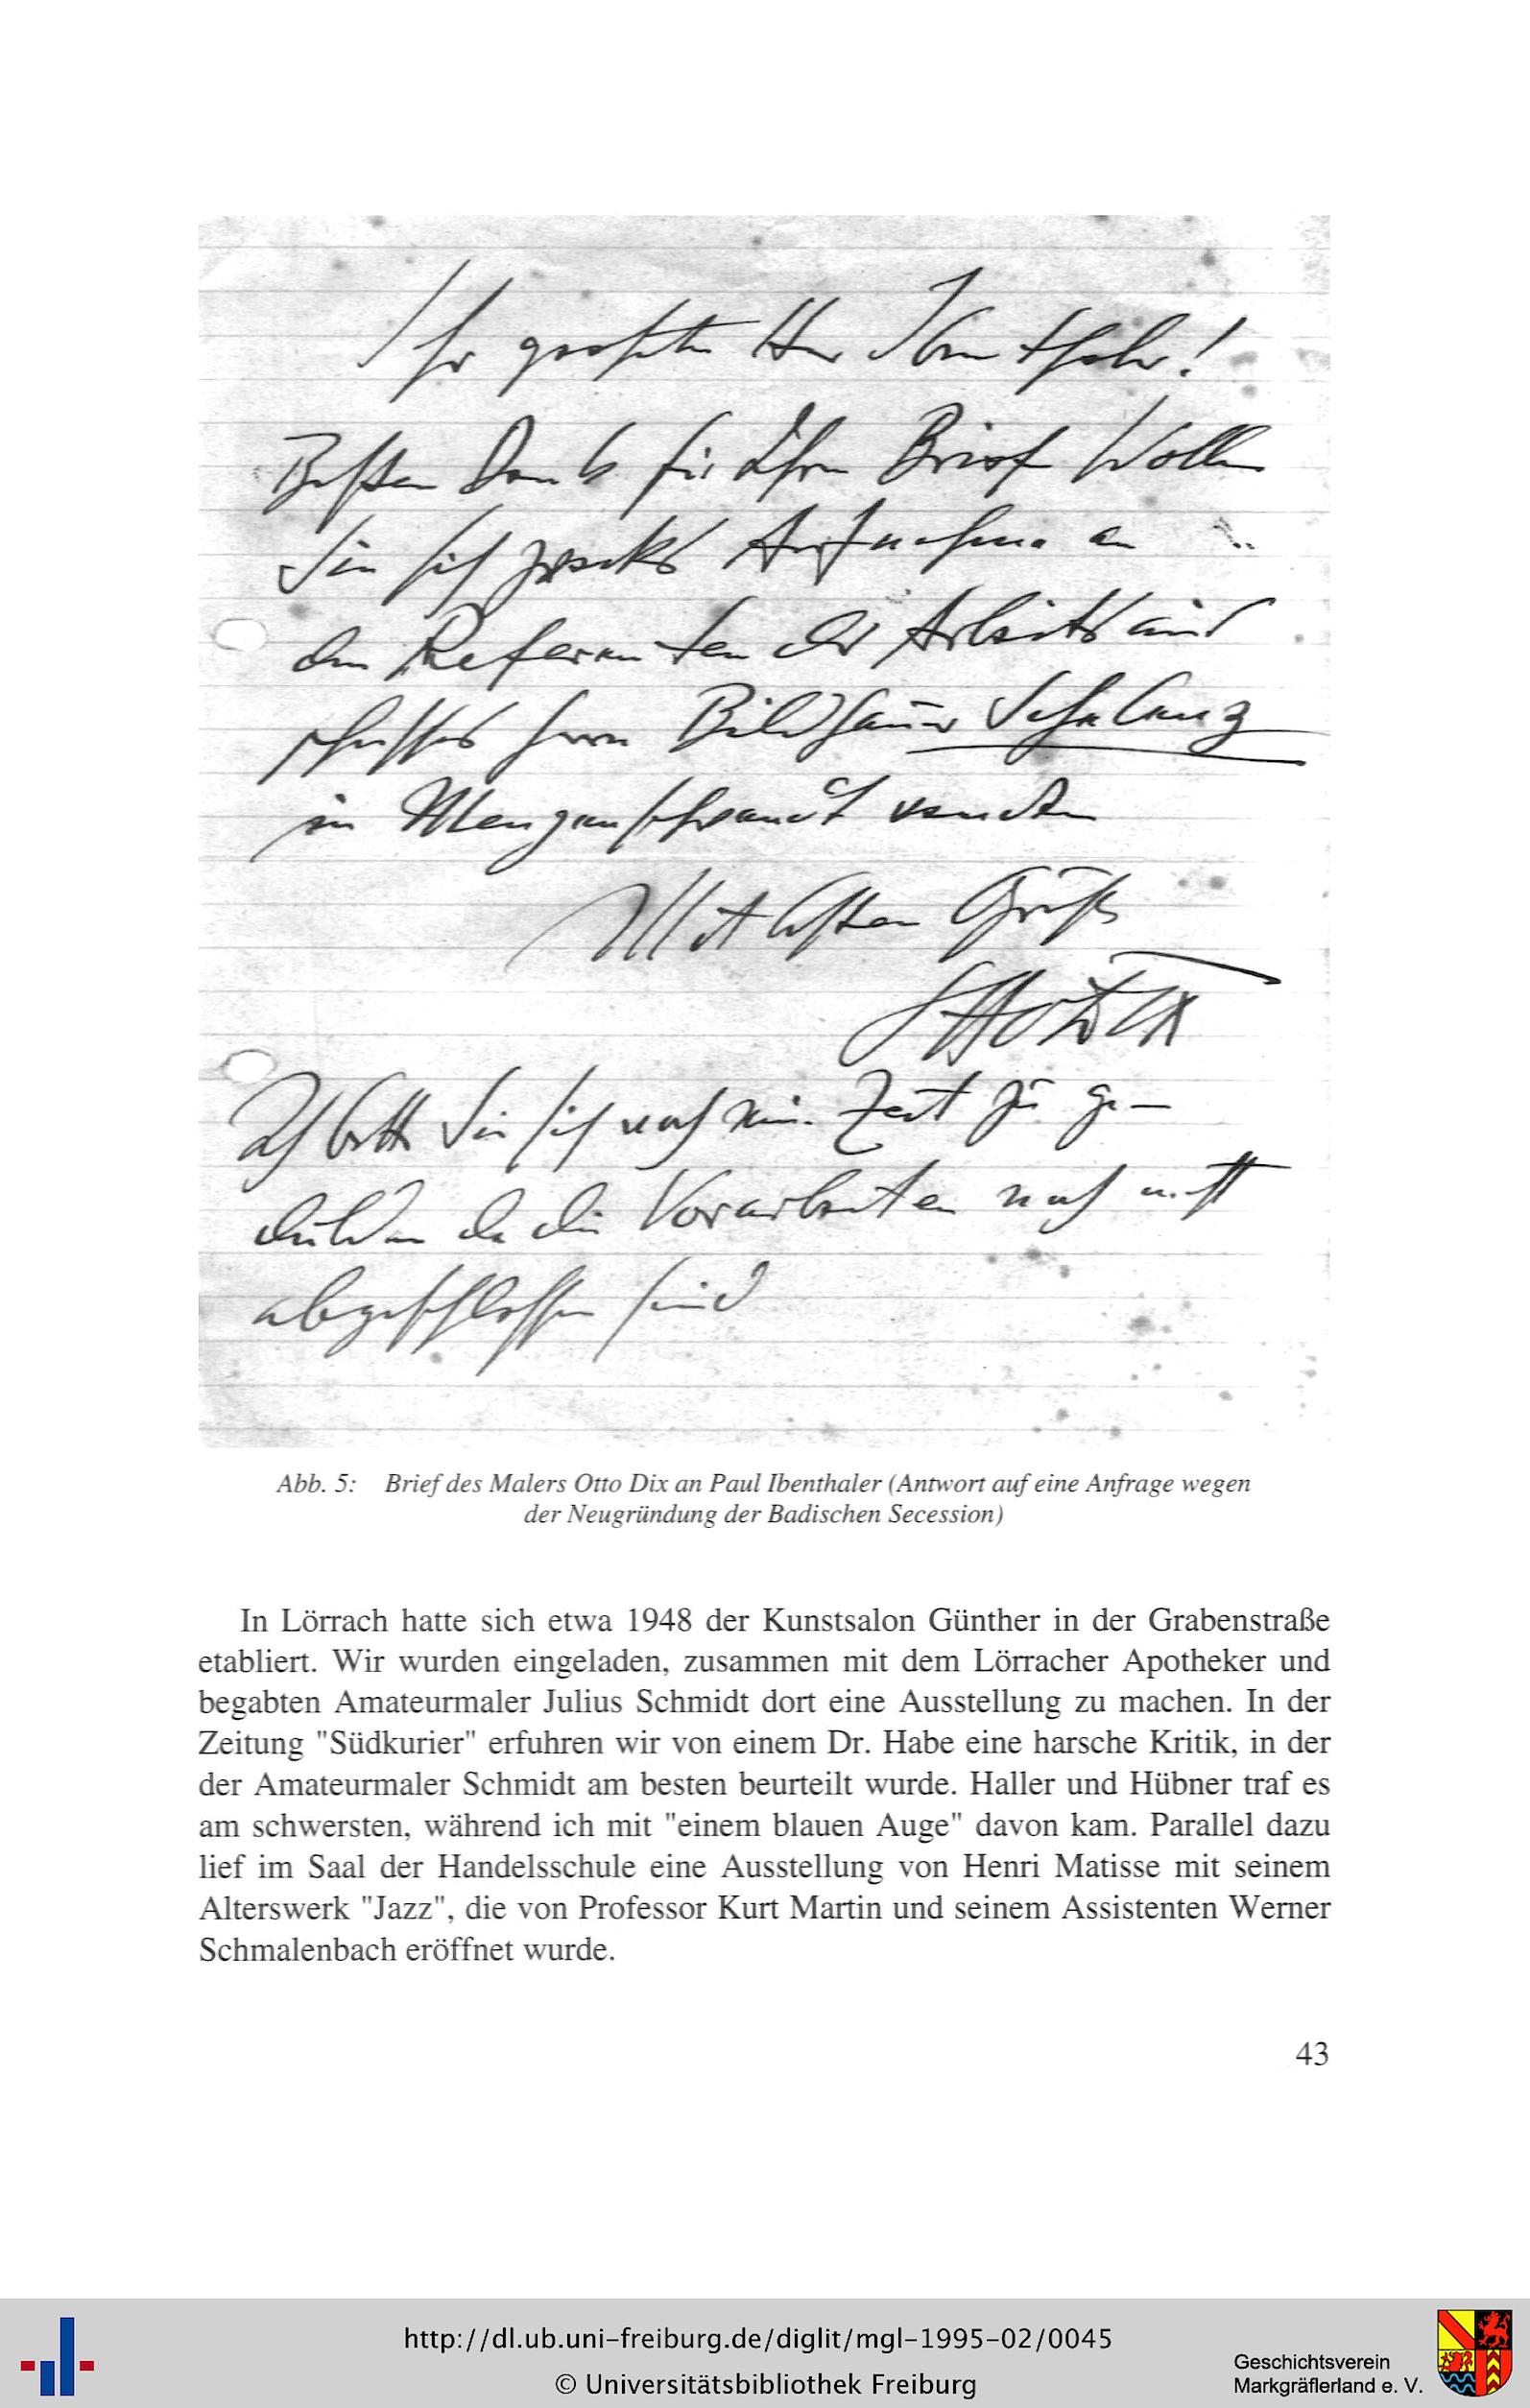 Sehr geehrter Herr Ibenthaler!
Besten Dank für Ihren Brief Wollen
Sie sich zwecks Aufnahme an
den Referenten des Arbeitsaus
schusses Herrn Bildhauer
in Menzenschwand wenden
Mit besten Grüßen
Otto Dix
Ich bitte Sie sich noch eine Zeit zu ge–
dulden da die Vorarbeiten noch nicht
abgeschlossen sind
Abb. 5: Brief des Malers Otto Dix an Paul Ibenthaler (Antwort auf eine Anfrage wegen
der Neugründung der Badischen Secession)
In Lörrach hatte sich etwa 1948 der Kunstsalon Günther in der Grabenstraße
etabliert. Wir wurden eingeladen, zusammen mit dem Lörracher Apotheker und
begabten Amateurmaler Julius Schmidt dort eine Ausstellung zu machen. In der
Zeitung "Südkurier" erfuhren wir von einem Dr. Habe eine harsche Kritik, in der
der Amateurmaler Schmidt am besten beurteilt wurde. Haller und Hübner traf es
am schwersten, während ich mit "einem blauen Auge" davon kam. Parallel dazu
lief im Saal der Handelsschule eine Ausstellung von Henri Matisse mit seinem
Alterswerk "Jazz", die von Professor Kurt Martin und seinem Assistenten Werner
Schmalenbach eröffnet wurde.
43
http://dl.ub.uni-freiburg.de/diglit/mgl-1995-02/0045
© Universitätsbibliothek Freiburg
Geschichtsverein
Markgräflerland e. V.